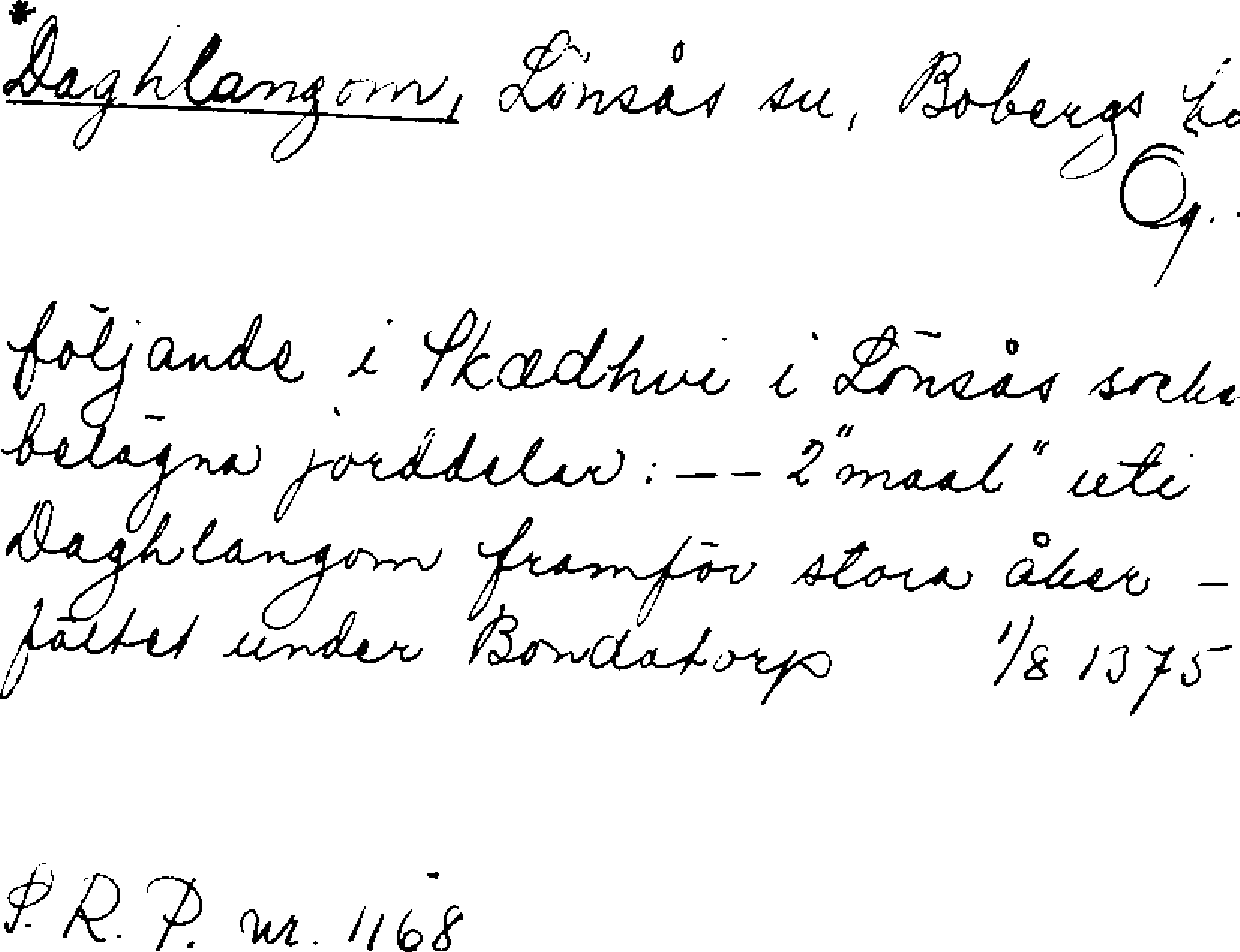 *Daghlangom, Lönsås sn, Bobergs
Ög.
följande i Skædhvi i Lönsås
belägna jorddelar: -- 2 "maal" uti
Daghlangom framför stora åker -
fältet under Bondatorp 1/8 1375
S. R. P. nr. 1168